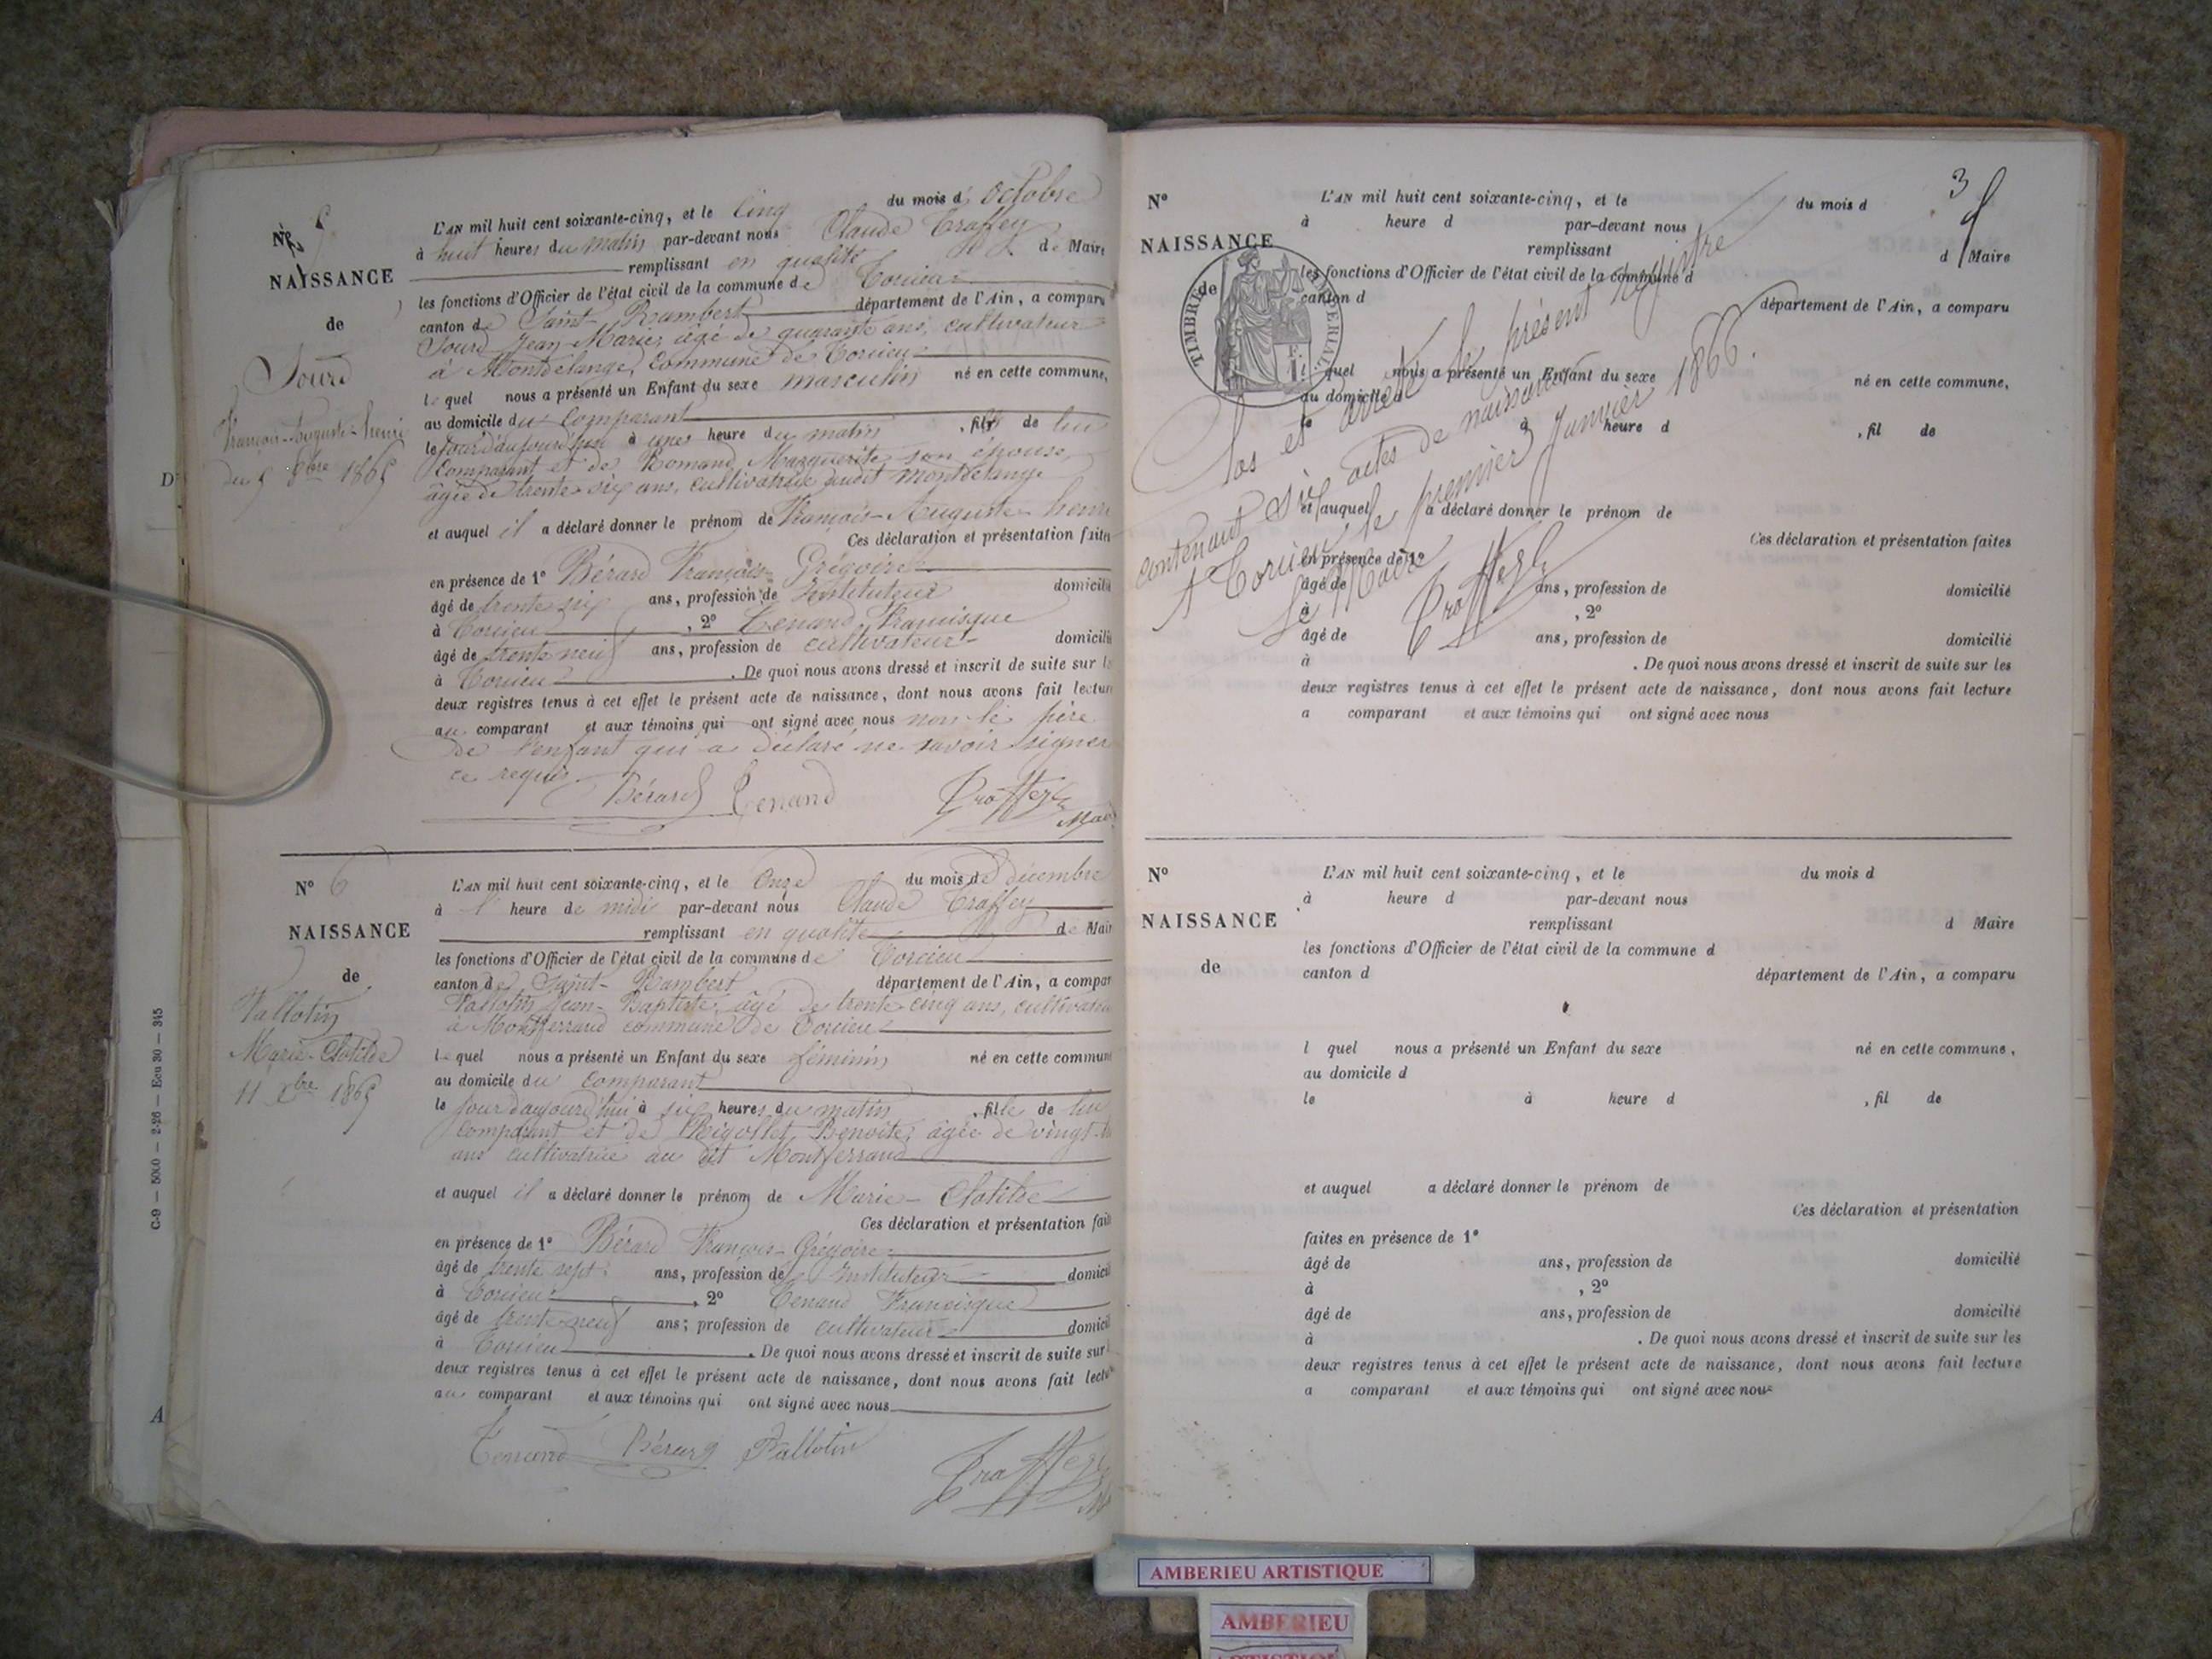 N° 5
NAISSANCE
de
Sourd
François-Auguste-henri
du 5 8bre 1865
L'AN mil huit cent soixante-cinq, et le Cinq du mois d' Octobre
à huit heures du matin par-devant nous Claude Traffey
remplissant en qualité de Maire
les fonctions d'Officier de l'état civil de la commune de Torcieu
canton de Saint-Rambert département de l'Ain, a comparu
Sourd Jean-Marie, âgé de quarante ans, cultivateur
à Montdelange, Commune de Torcieu
lequel nous a présenté un Enfant du sexe masculin né en cette commune,
au domicile du Comparant
le jour d'aujourd'hui à une heure du matin, fils de lui
Comparant et de Romand Marguerite son épouse,
âgée de trente six ans, cultivatrice audit Montdelange
et auquel il a déclaré donner le prénom de François-Auguste-henri
Ces déclaration et présentation faites
en présence de 1° Bérard François-Grégoire
âgé de trente six ans, profession de Instituteur domicilié
à Torcieu, 2° Tenand Francisque
âgé de trente neuf ans, profession de cultivateur domicilié
à Torcieu. De quoi nous avons dressé et inscrit de suite sur l
deux registres tenus à cet effet le présent acte de naissance, dont nous avons fait lectur
au comparant et aux témoins qui ont signé avec nous non le père
de l'enfant qui a déclaré ne savoir signer
ce requis.
Bérard Tenand Traffey
Mai
N° 6
NAISSANCE
de
Vallotin
Marie-Clotilde
11 Xbre 1865
L'AN mil huit cent soixante-cinq, et le Onze du mois de décembre
à l' heure de midi par-devant nous Claude Traffey
remplissant en qualité de Mair
les fonctions d'Officier de l'état civil de la commune de Torcieu
canton de Saint-Rambert département de l'Ain, a compar
Vallotin Jean-Baptiste, âgé de trente cinq ans, cultivateu
à Montferrand commune de Torcieu
lequel nous a présenté un Enfant du sexe féminin né en cette commun
au domicile du Comparant
le jour d'aujourd'hui à six heures du matin, fille de lui
Comparant et de Rigollet Benoite, âgée de vingt
ans cultivatrice au dit Montferrand
et auquel il a déclaré donner le prénom de Marie-Clotilde
Ces déclaration et présentation fait
en présence de 1° Bérard François-Grégoire
âgé de trente sept ans, profession de Instituteur domicil
à Torcieu, 2° Tenand Francisque
âgé de trente neuf ans, profession de cultivateur domicil
à Torcieu. De quoi nous avons dressé et inscrit de suite sur l
deux registres tenus à cet effet le présent acte de naissance, dont nous avons fait lectu
au comparant et aux témoins qui ont signé avec nous
Tenand Bérard Vallotin Traffey
C-9 — 5000 — 2-26 — Ecu 30 — 345
D
A
3
N°
NAISSANCE
de
TIMBRE IMPERIAL
L'AN mil huit cent soixante-cinq, et le du mois d
à heure d par-devant nous
remplissant d Maire
les fonctions d'Officier de l'état civil de la commune d
canton d département de l'Ain, a comparu
l quel nous a présenté un Enfant du sexe né en cette commune,
au domicile d
le à heure d , fil de
et auquel a déclaré donner le prénom de
Ces déclaration et présentation faites
en présence de 1°
âgé de ans, profession de domicilié
à , 2°
âgé de ans, profession de domicilié
à . De quoi nous avons dressé et inscrit de suite sur les
deux registres tenus à cet effet le présent acte de naissance, dont nous avons fait lecture
a comparant et aux témoins qui ont signé avec nous
Clos et arrêté le présent registre
contenant six actes de naissance
A Torcieu le premier Janvier 1866.
Le Maire
Traffey
N°
NAISSANCE
de
L'AN mil huit cent soixante-cinq, et le du mois d
à heure d par-devant nous
remplissant d Maire
les fonctions d'Officier de l'état civil de la commune d
canton d département de l'Ain, a comparu
l quel nous a présenté un Enfant du sexe né en cette commune,
au domicile d
le à heure d , fil de
et auquel a déclaré donner le prénom de
Ces déclaration et présentation
faites en présence de 1°
âgé de ans, profession de domicilié
à , 2°
âgé de ans, profession de domicilié
à . De quoi nous avons dressé et inscrit de suite sur les
deux registres tenus à cet effet le présent acte de naissance, dont nous avons fait lecture
a comparant et aux témoins qui ont signé avec nous
AMBERIEU ARTISTIQUE
AMBERIEU
ARTISTIQUE